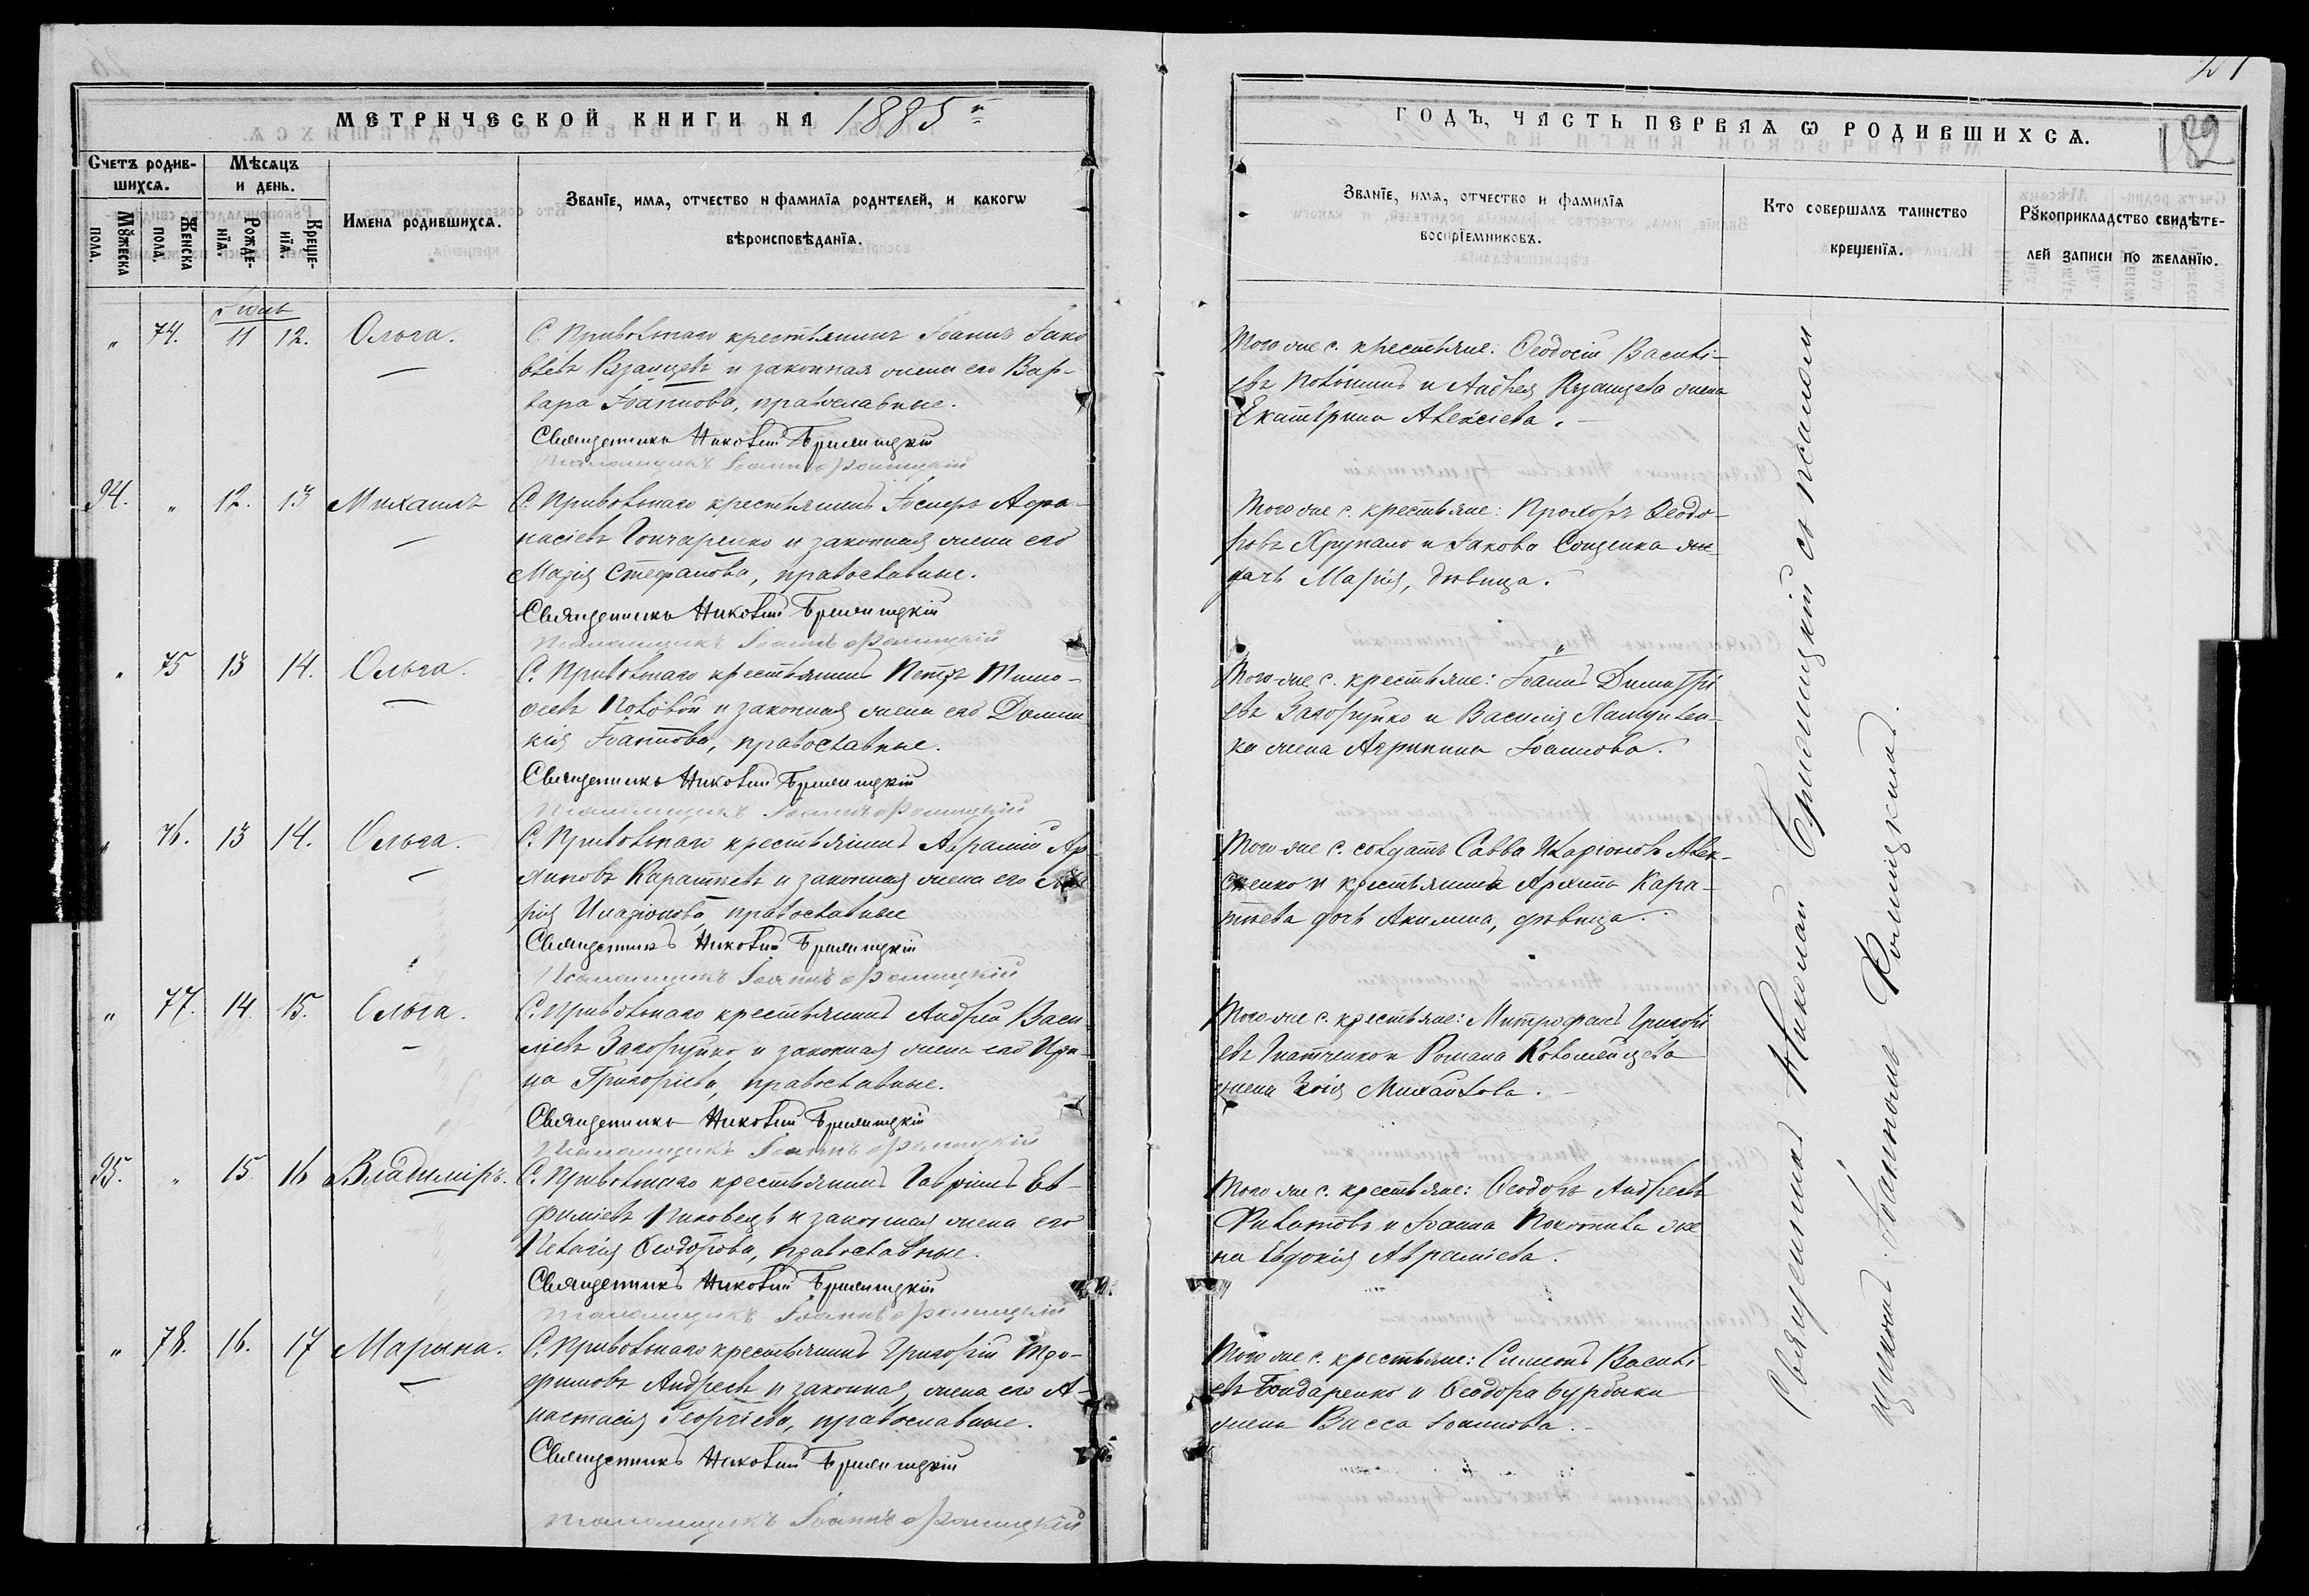 МЕТРИЧЕСКОЙ КНИГИ НА 1885й
Счетъ родив-
шихся.
Мѣсяцъ
и день.
Мужеска
пола.
Женска
пола.
Рожде-
нія.
Креще-
нія.
Имена родившихся.
Званіе, имя, отчество и фамилія родителей, и какогѡ
вѣроисповѣданія.
Іюль
" 74. 11 12. Ольга.
С. Привольнаго крестьянинъ Іоаннъ Іако
влевъ Рязанцевъ и законная жена его Вар-
вара Іоаннова, православные.
Священникъ Николай
Псаломщикъ Іоаннъ Фомицкій
94. " 12. 13 Михаилъ
С. Привольнаго крестьянинъ Іосифъ Афа-
насіевъ Гончаренко и законная жена его
Марія Стефанова, православные.
Священникъ Николай
Псаломщикъ Іоаннъ Фомицкій
" 75 13 14. Ольга.
С. Привольнаго крестьянинъ Петръ Тимо-
феевъ и законная жена его Домни
кія Іоаннова, православные.
Священникъ Николай
Псаломщикъ Іоаннъ Фомицкій
" 76. 13 14. Ольга.
С. Привольнаго крестьянинъ Аврамій Ар
хиповъ Каратѣевъ и законная жена его Ма
рія Иларіонова, православные
Священникъ Николай
Псаломщикъ Іоаннъ Фомицкій
" 77. 14 15. Ольга.
С. Привольнаго крестьянинъ Андрей Васи
ліевъ Загоруйко и законная жена его Ири-
на Григоріева, православные.
Священникъ Николай
Псаломщикъ Іоаннъ Фомицкій
95. " 15 16 Владиміръ.
С. Привольнаго крестьянинъ Гавріилъ Ев-
фиміевъ Пиковецъ и законная жена его
Пелагія Ѳеодорова, православные.
Священникъ Николай
Псаломщикъ Іоаннъ Фомицкій
" 78. 16. 17 Марина.
С. Привольнаго крестьянинъ Григорій Тро-
фимовъ Андреевъ и законная жена его А-
настасія Георгіева, православные.
Священникъ Николай
Псаломщикъ Іоаннъ Фомицкій
ГОДЪ, ЧАСТЬ ПЕРВАЯ Ѡ РОДИВШИХСЯ.
182
Званіе, имя, отчество и фамилія
воспріемниковъ.
Кто совершалъ таинство
крещенія.
Рукоприкладство свидѣте-
лей записи по желанію.
Того же с. крестьяне: Ѳеодосій Василі-
евъ и Андрея Рязанцева жена
Екатерина Алексіева.
Того же с. крестьяне: Прохоръ Ѳеодо-
ровъ Хрупало и Іакова Сощенка
дочь Марія, дѣвица.
Того же с. крестьяне: Іоаннъ Димитрі
евъ Загоруйко и Василія
ка жена Агрипина Іоаннова.
Того же с. солдатъ Савва Иларіоновъ Алек-
сѣенко и крестьянина Архипа Кара-
тѣева дочь Акилина, дѣвица.
Того же с. крестьяне: Митрофанъ Григорі
евъ Игнатченко и Романа Коломѣйцева
жена Зоія Михайлова.
Того же с. крестьяне: Ѳеодоръ Андреевъ
Филатовъ и Іоанна Покотила же
на Евдокія Авраміева.
Того же с. крестьяне: Симеонъ Василі-
евъ Бондаренко и Ѳеодора Бурдыки
жена Васса Іоаннова.
Священникъ Николай со псалом-
щикомъ Іоанномъ Фомицкимъ.